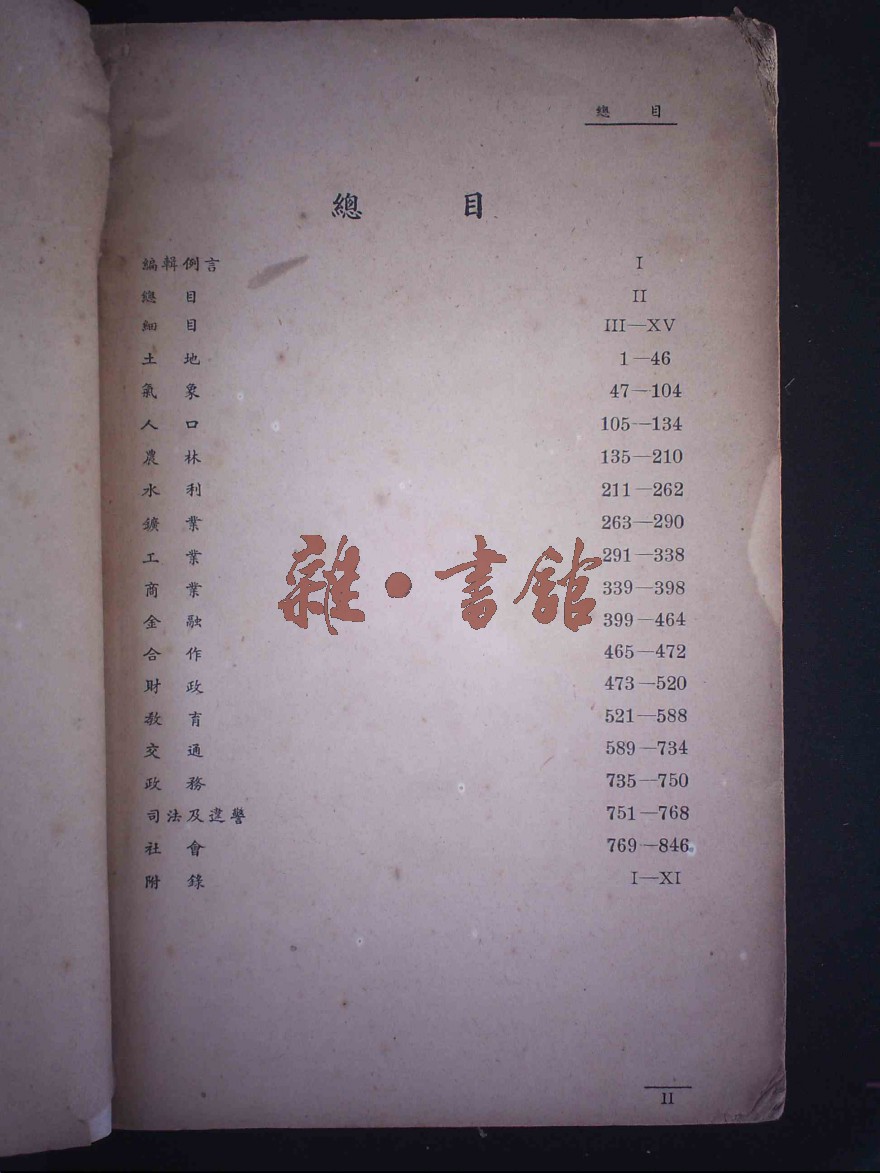 總 目
總 目
編輯例言 I
總 目 II
細 目 III—XV
土 地 1—46
氣 象 47—104
人 口 105—134
農 林 135—210
水 利 211—262
鑛 業 263—290
工 業 291—338
商 業 339—398
雜·書館
金 融 399—464
合 作 465—472
財 政 473—520
教 育 521—588
交 通 589—734
政 務 735—750
司法及違警 751—768
社 會 769—846
附 錄 I—XI
II